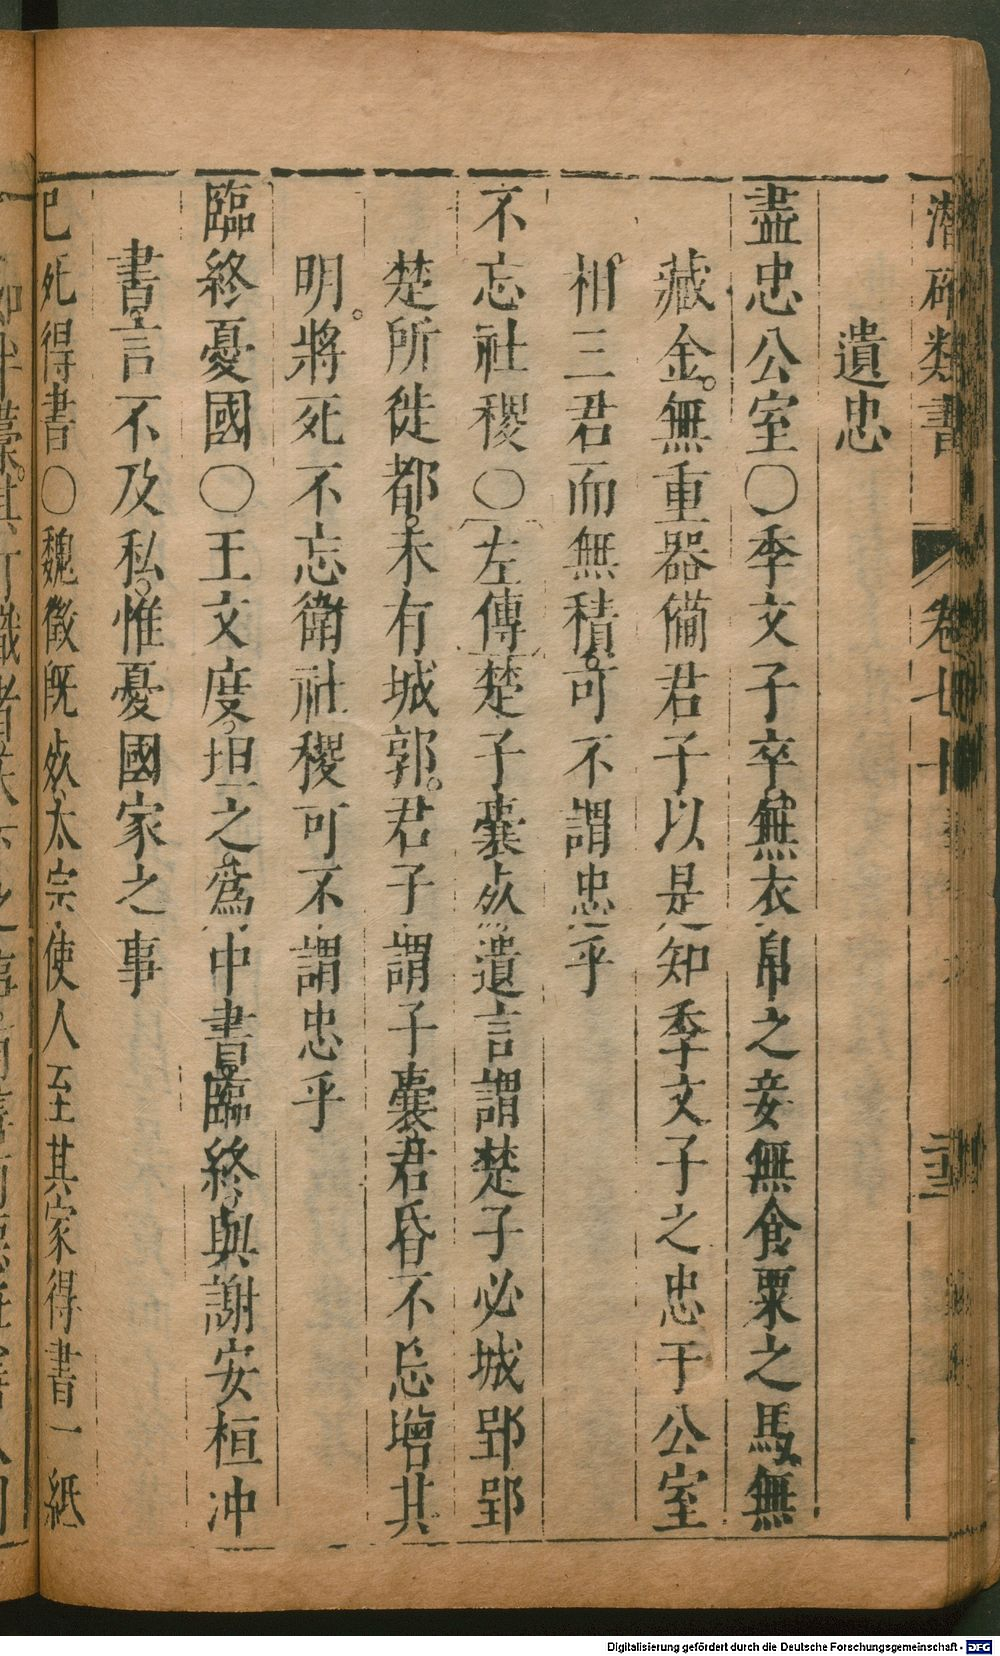 潛確類書 卷七十 二三
遺忠
盡忠公室○季文子卒無衣帛之妾無食粟之馬無
藏金。無重器備君子以是知季文子之忠于公室
相三君而無積。可不謂忠乎
不忘社稷○左傳楚子囊㱙遺言謂楚子必城郢郢
楚所徙都。未有城郭。君子謂子囊君昏不忘增其
明。將死不忘衛社稷可不謂忠乎
臨終憂國○王文度。坦之為中書臨終。與謝安桓冲
書言不及私。惟憂國家之事
已死得書○魏徵既㱙太宗使人至其家得書一紙
Digitalisierung gefördert durch die Deutsche Forschungsgemeinschaft - DFG